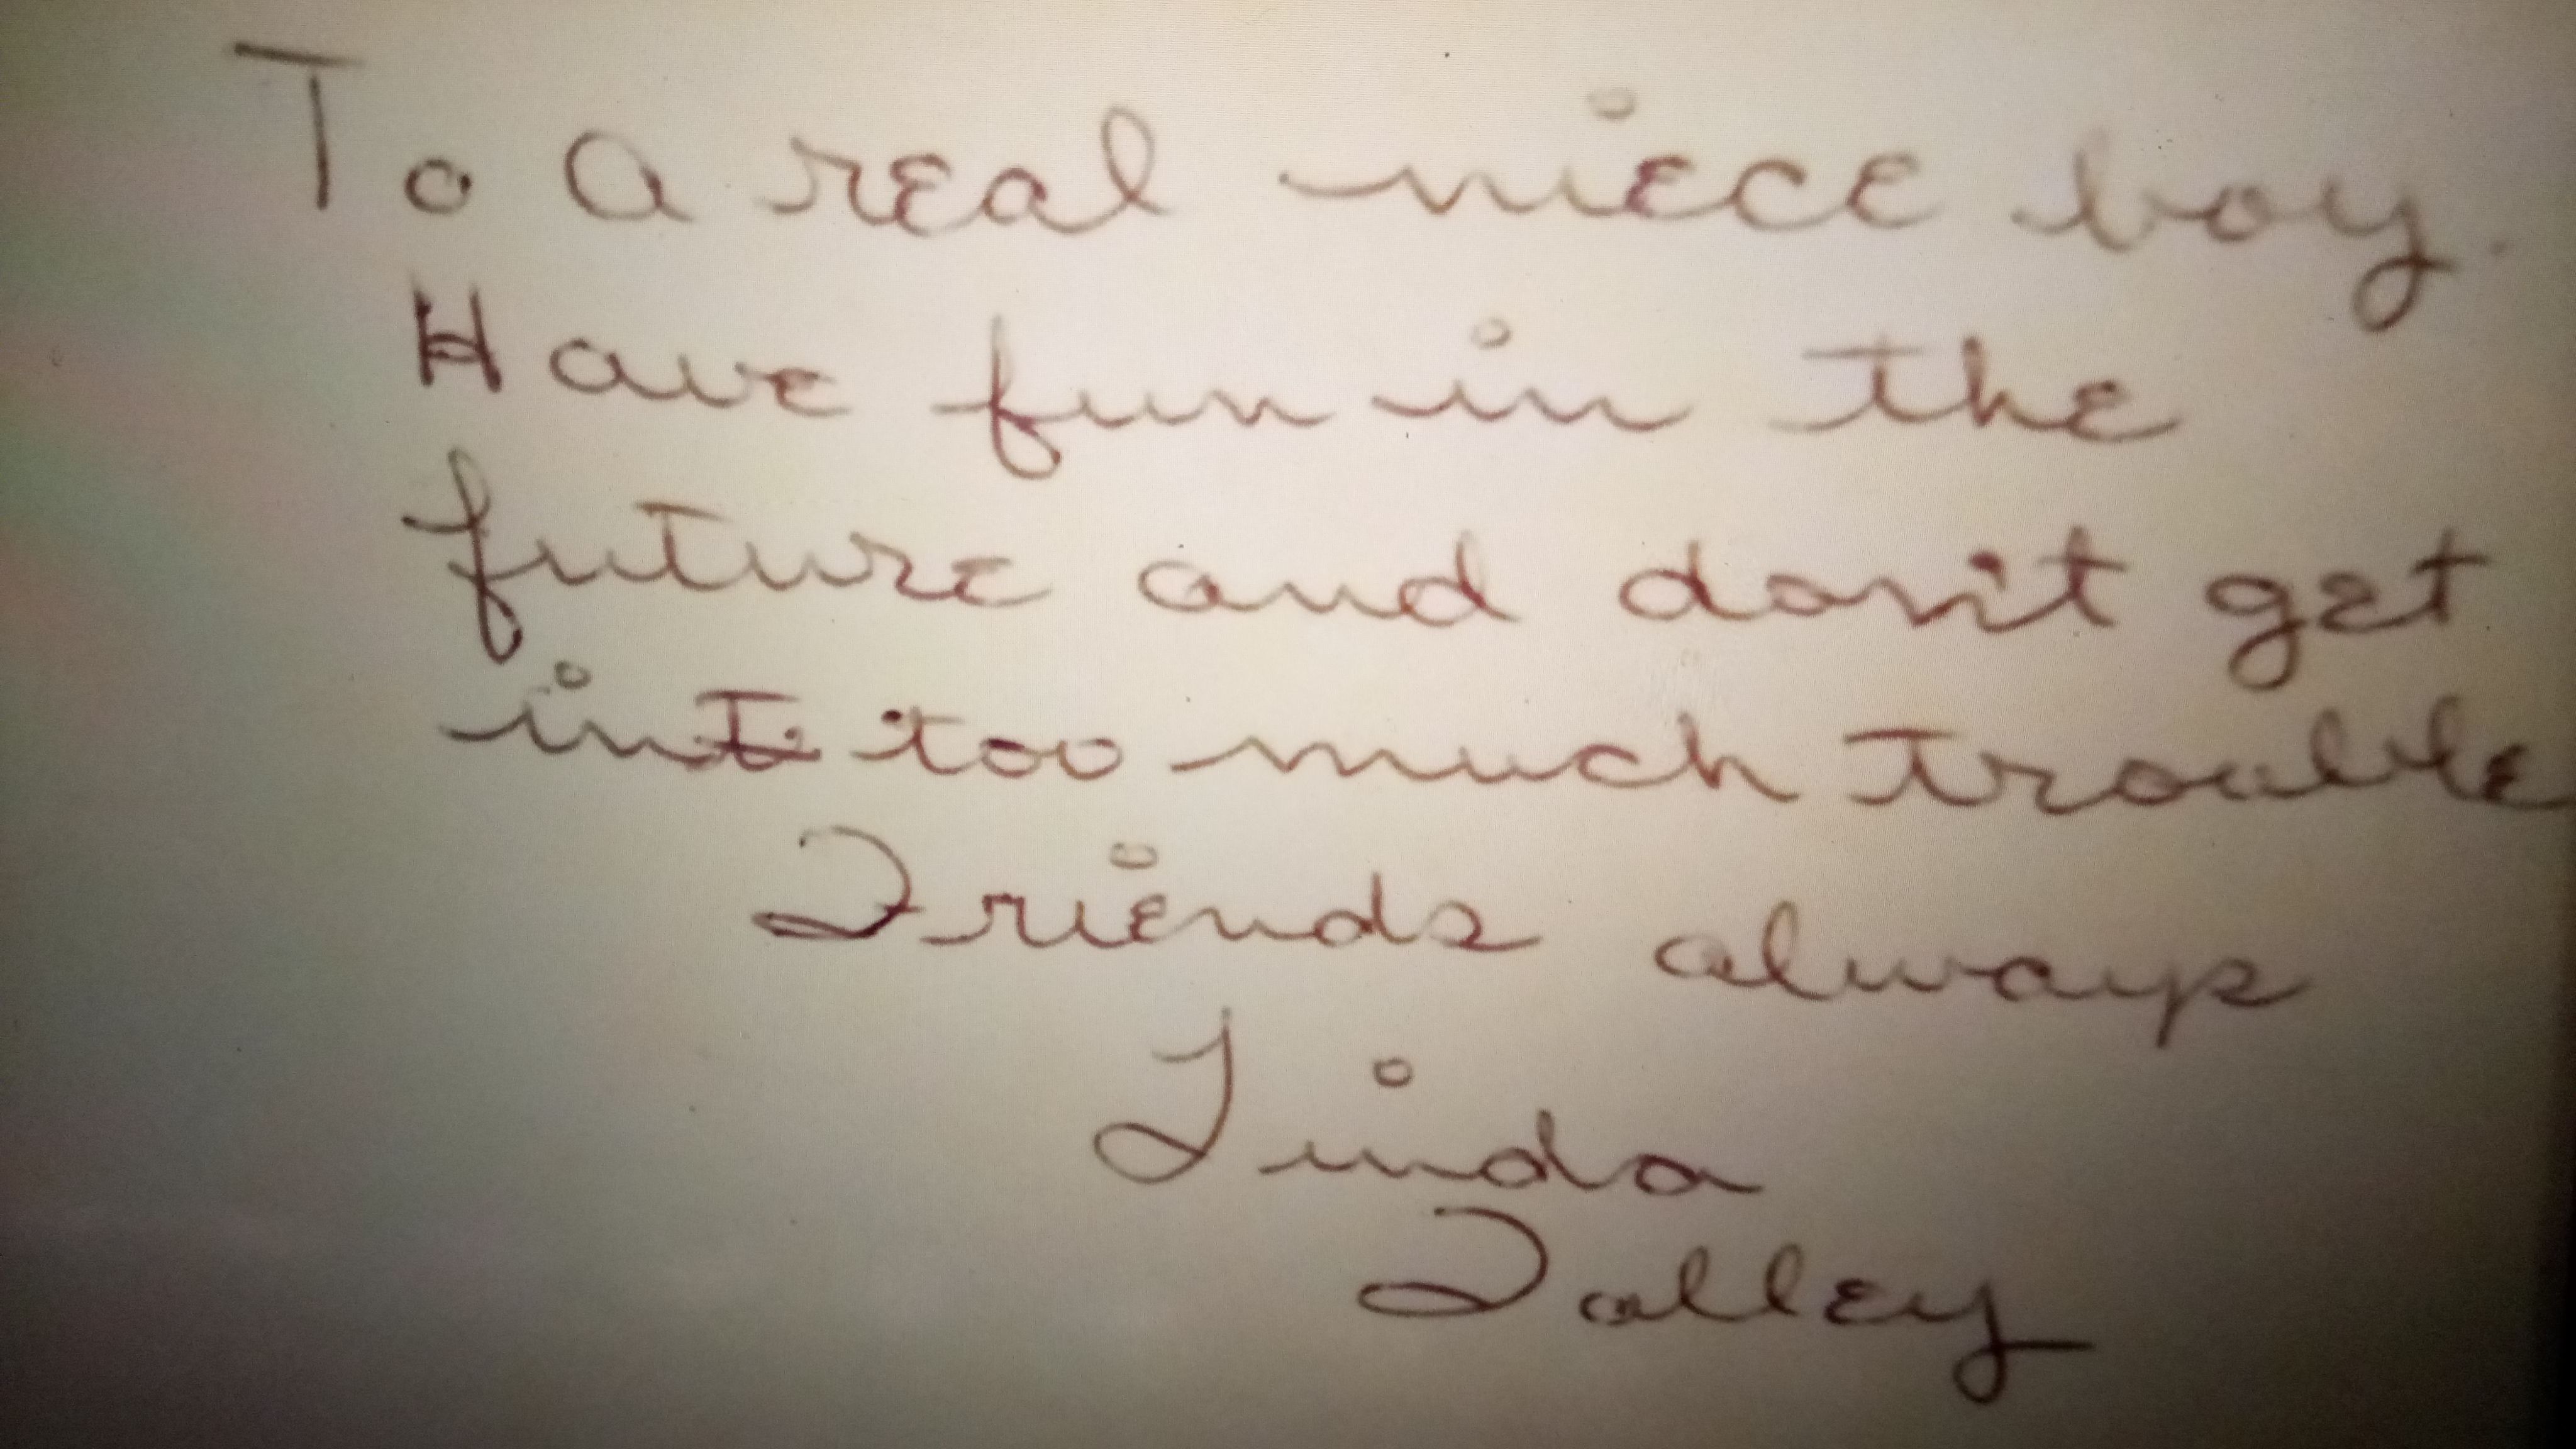 To a real niece boy.
Have fun in the
future and don't get
into too much trouble
Friends always
Linda
Talley